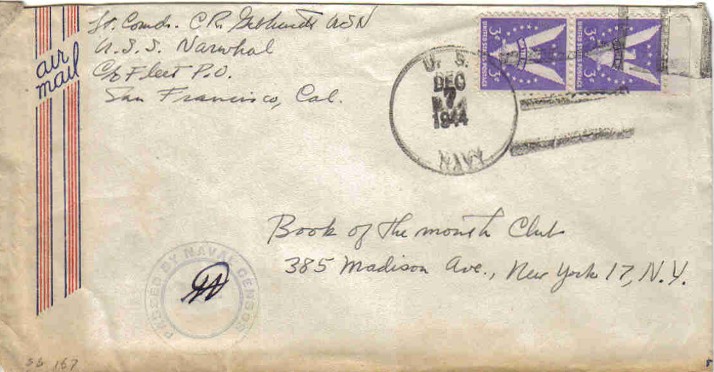 air
mail
Lt. Comdr. C R. Gebhardt USN
U.S.S. Narwhal
c/o Fleet P.O.
San Francisco, Cal.
UNITED STATES POSTAGE
3¢
UNITED STATES POSTAGE
3¢
U. S.
DEC
7
1944
NAVY
Book of the month Club
385 Madison Ave., New York 17, N.Y.
PASSED BY NAVAL CENSOR
SS 167